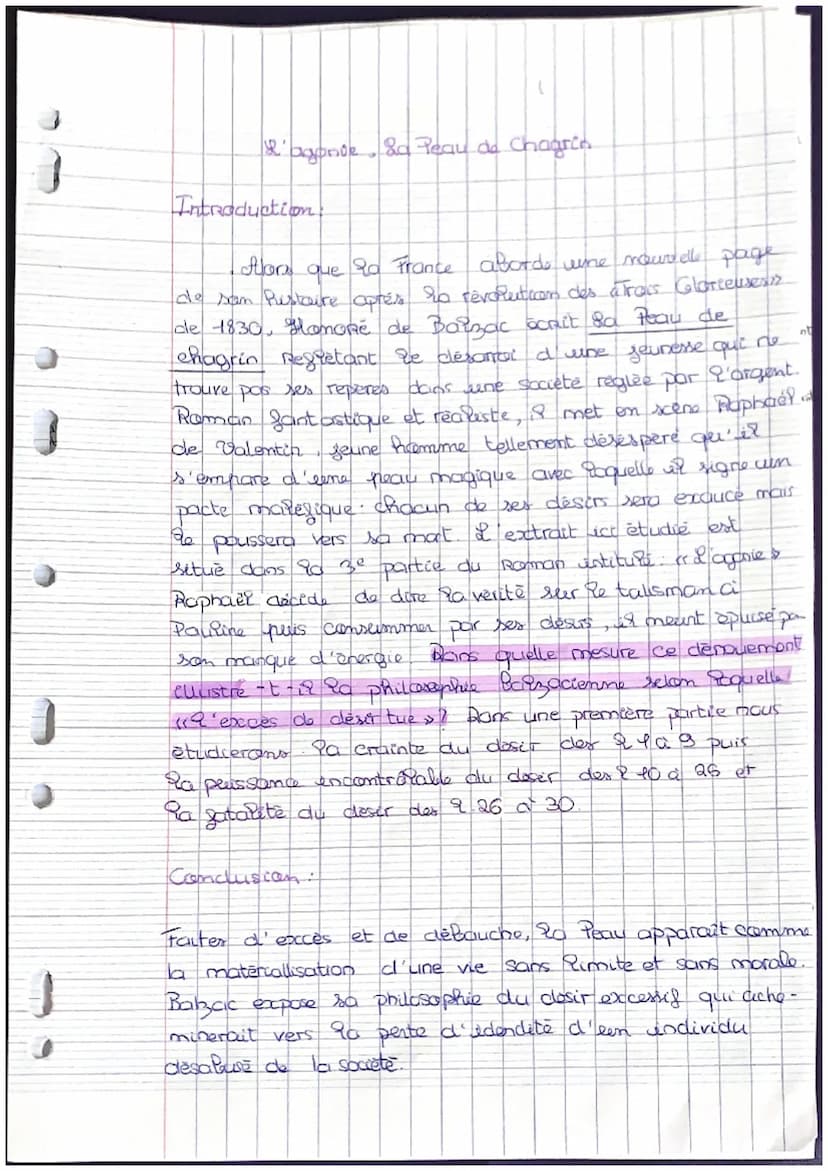 L'agonie, La Peau de Chagrin
Introduction :
Alors que la France aborde une nouvelle page
de son histoire après la révolution des « Trois Glorieuses »
de 1830, Honoré de Balzac écrit La Peau de
chagrin reflétant le désarroi d'une jeunesse qui ne
trouve pas ses repères dans une société réglée par l'argent.
Roman fantastique et réaliste, il met en scène Raphaël
de Valentin, jeune homme tellement désespéré qu'il
s'empare d'une peau magique avec laquelle il signe un
pacte maléfique : chacun de ses désirs sera exaucé mais
le poussera vers sa mort. L'extrait ici étudié est
situé dans la 3e partie du Roman intitulé : « L'agonie »
Raphaël décide de dire la vérité sur le talisman à
Pauline puis consummer par ses désirs, il meurt épuisé par
son manque d'énergie. Dans quelle mesure ce dénouement
illustre-t-il la philosophie Balzacienne selon laquelle
« l'excès de désir tue » ? Dans une première partie nous
étudierons la crainte du désir des l 1 à 9 puis
la puissance incontrôlable du désir des l 10 à 26 et
la fatalité du désir des l. 26 à 30.
Conclusion :
Faites d'excès et de débauche, la Peau apparaît comme
la matérialisation d'une vie sans limite et sans morale.
Balzac expose sa philosophie du désir excessif qui ache-
minerait vers la perte d'idendité d'un individu
désabusé de la société.